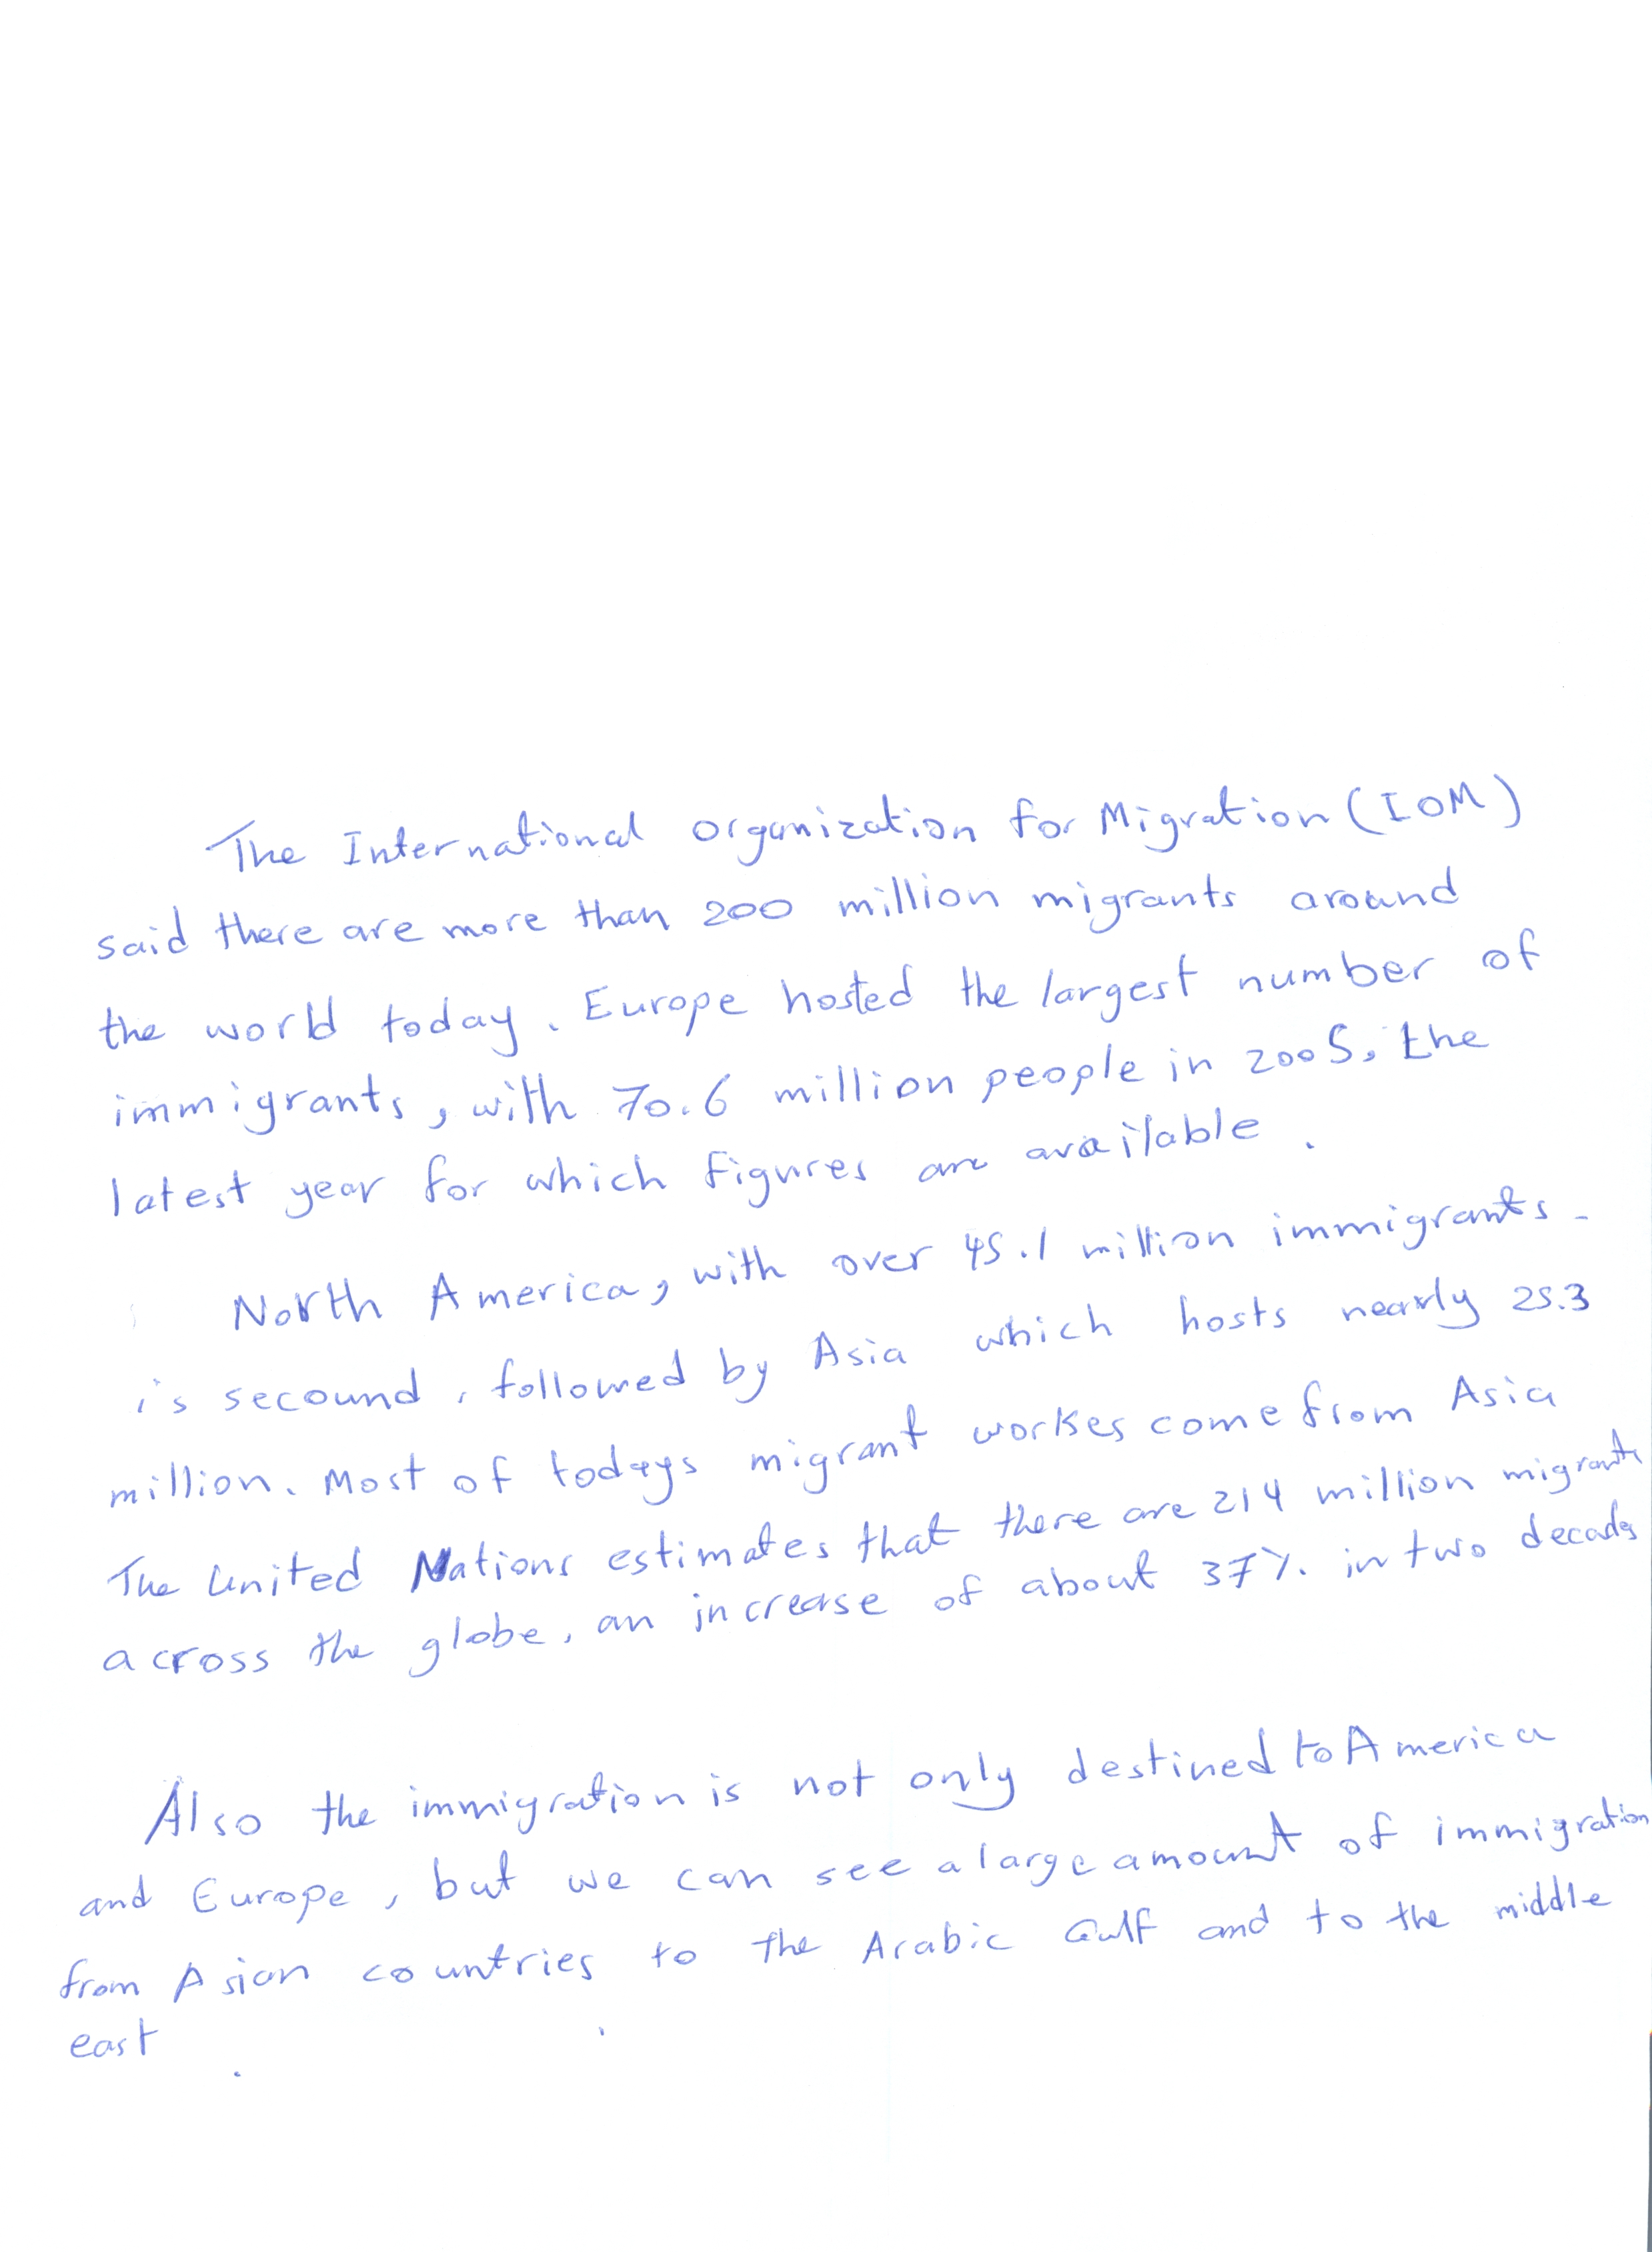 The International Organization for Migration (IOM)
said there are more than 200 million migrants around
the world today. Europe hosted the largest number of
immigrants, with 70.6 million people in 2005, the
latest year for which figures are available.
North America, with over 45.1 million immigrants-
is secound, followed by Asia which hosts nearly 25.3
million. Most of todays migrant workes come from Asia
The United Nations estimates that there are 214 million migrants
across the globe, an increase of about 37% in two decades
Also the immigration is not only destined to America
and Europe, but we can see a large amount of immigration
from Asian countries to the Arabic Gulf and to the middle
east.